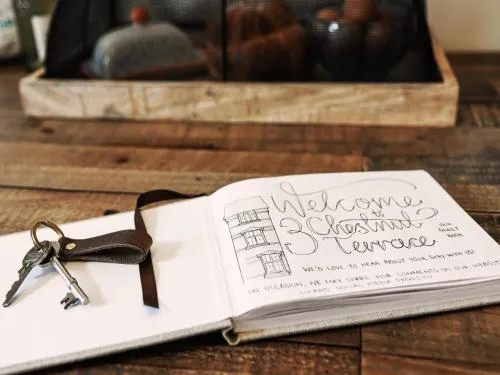 Welcome
to
3 Chestnut
Terrace
OUR
GUEST
BOOK
WE'D LOVE TO HEAR ABOUT YOUR STAY WITH US!
ON OCCASION, WE MAY SHARE YOUR COMMENTS ON OUR WEBSITE
AND SOCIAL MEDIA